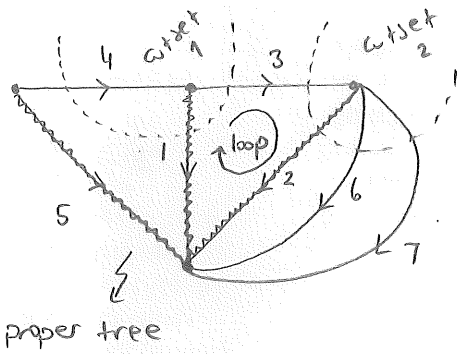 4
cutset
1
3
cutset
2
1
loop
2
5
6
7
proper tree